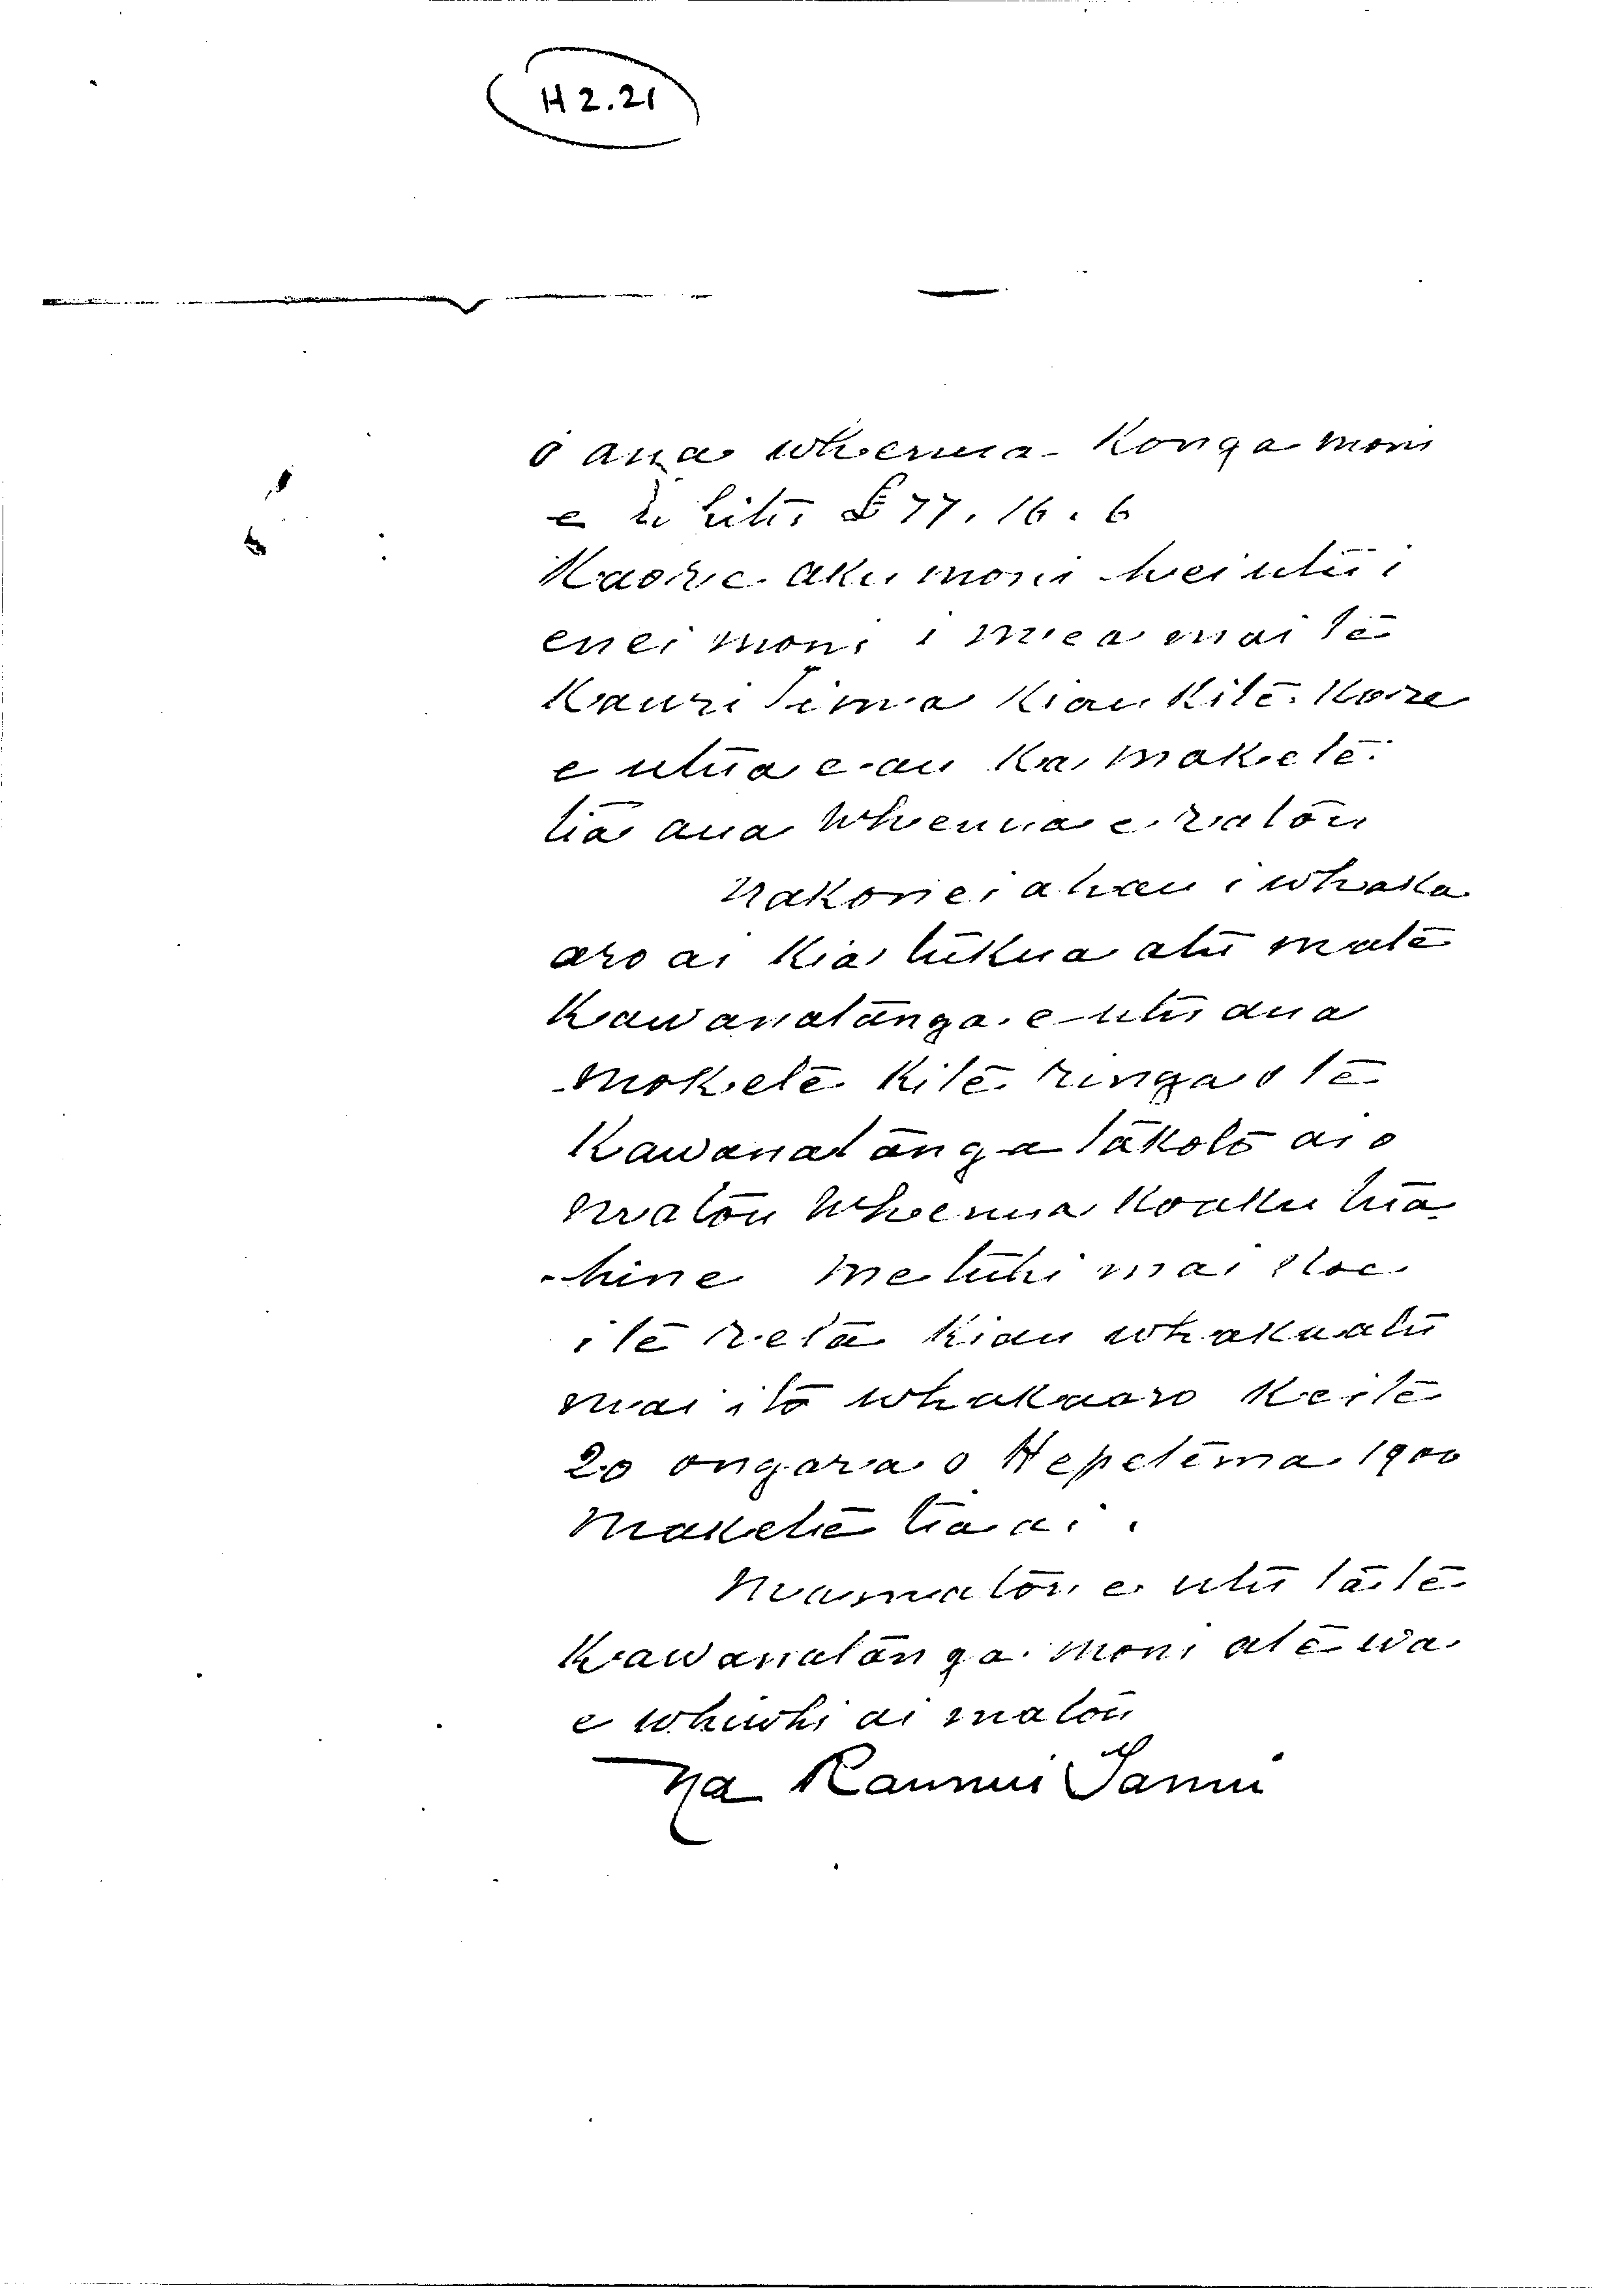 H2.21
o aua whenua Konga moni
e £77.16.6
Kaore aku moni hei utu i
enei moni i mea mai te
Kauri Tima kiau kite Kore
e utua e au Ka makete
tia aua whenua e ratou
Nakonei ahau i whaka
aro ai kia tukua atu mate
Kawanatanga e utu aua
mokete kite ringa o te
Kawanatanga takoto ai o
matou whenua Koaku tua
hine me tuhi mai Koe
i te reta kiau whakaatu
mai ito whakaaro Keite
20 ongara o Hepetema 1900
Makete tia ai.
Mamatou e utu taite
Kawanatanga moni atewa
e whiwhi ai matou
Na Raumui Tamu